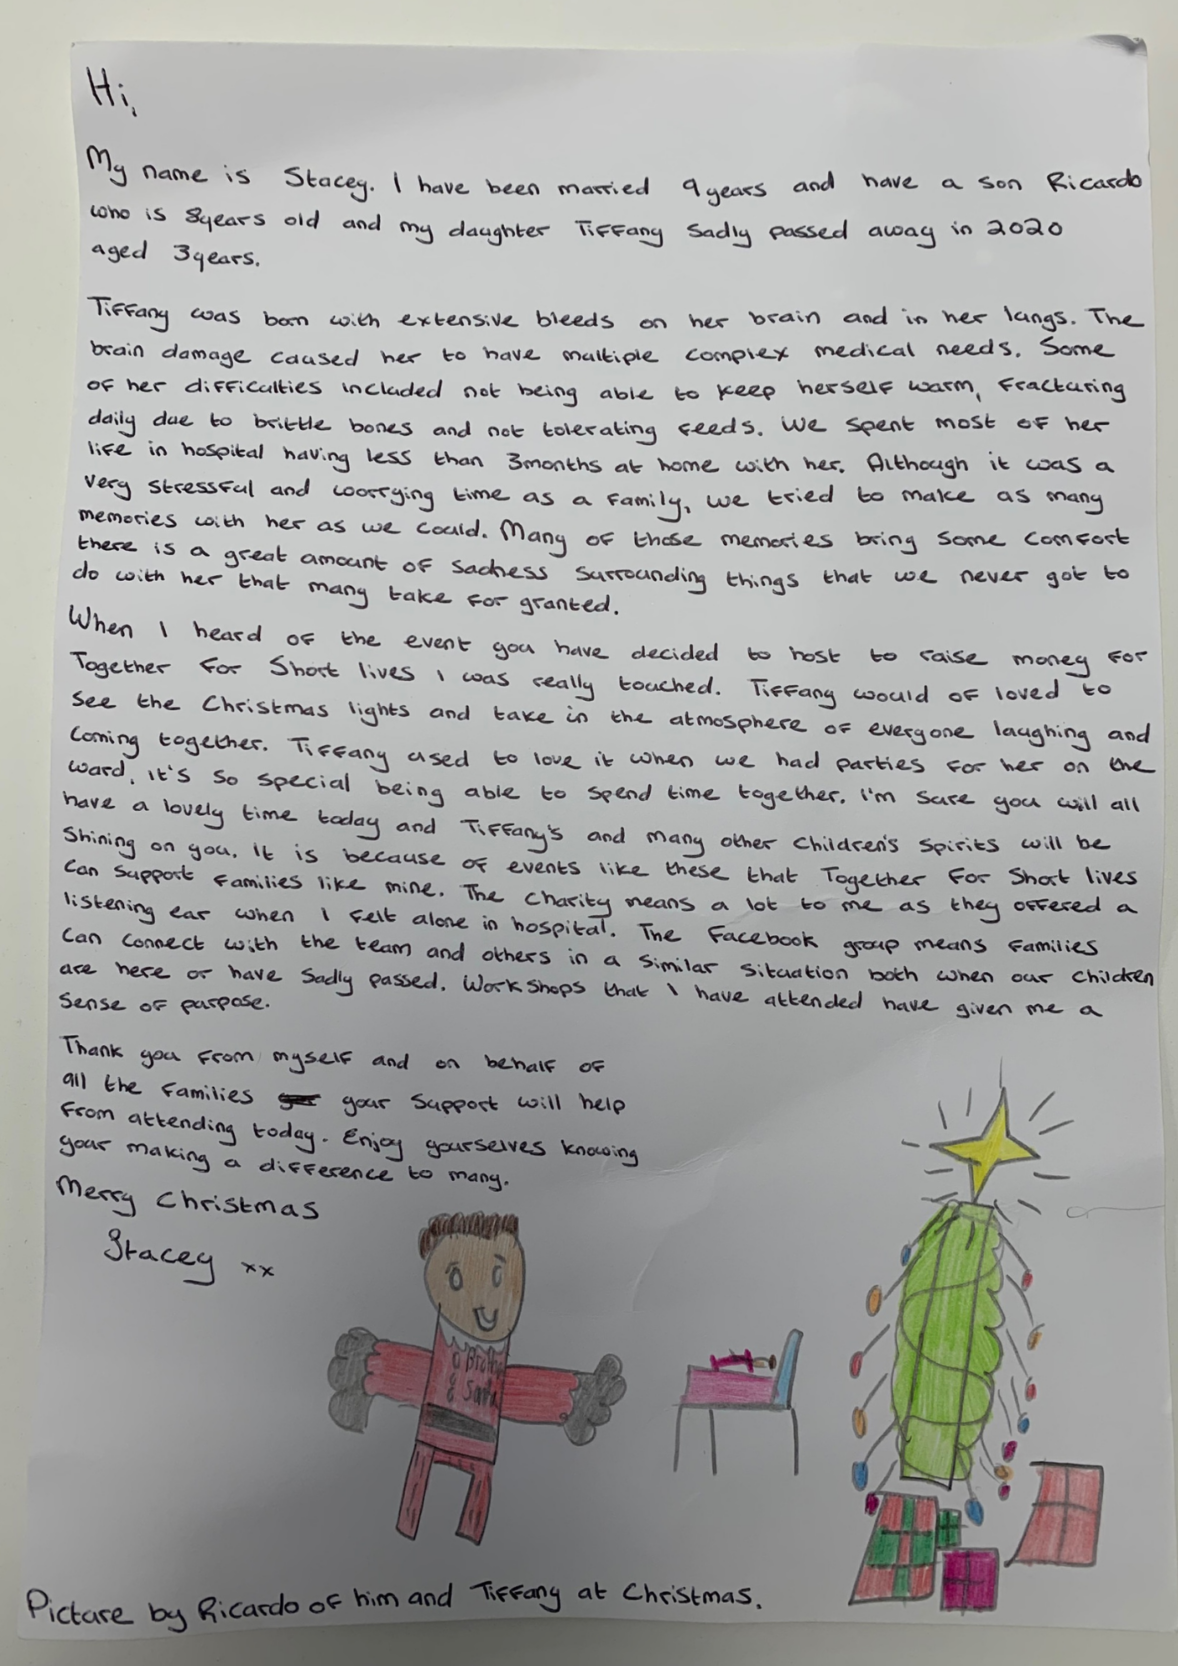 Hi,
My name is Stacey. I have been married 9 years and have a son Ricardo
who is 8years old and my daughter Tiffany Sadly passed away in 2020
aged 3years.
Tiffany was born with extensive bleeds on her brain and in her lungs. The
brain damage caused her to have multiple complex medical needs. Some
of her difficulties included not being able to keep herself warm, fracturing
daily due to brittle bones and not tolerating feeds. We spent most of her
life in hospital having less than 3months at home with her. Although it was a
very stressful and worrying time as a family, we tried to make as many
memories with her as we could. Many of those memories bring some comfort
there is a great amount of sadness surrounding things that we never got to
do with her that many take for granted.
When I heard of the event you have decided to host to raise money for
Together for Short lives I was really touched. Tiffany would of loved to
see the Christmas lights and take in the atmosphere of everyone laughing and
coming together. Tiffany used to love it when we had parties for her on the
ward, it's so special being able to spend time together. I'm sure you will all
have a lovely time today and Tiffany's and many other children's spirits will be
shining on you. It is because of events like these that Together for Short lives
can support families like mine. The charity means a lot to me as they offered a
listening ear when I felt alone in hospital. The Facebook group means families
can connect with the team and others in a similar situation both when our children
are here or have sadly passed. Workshops that I have attended have given me a
sense of purpose.
Thank you from myself and on behalf of
all the families your support will help
from attending today. Enjoy yourselves knowing
your making a difference to many.
Merry Christmas
Stacey xx
Picture by Ricardo of him and Tiffany at Christmas.